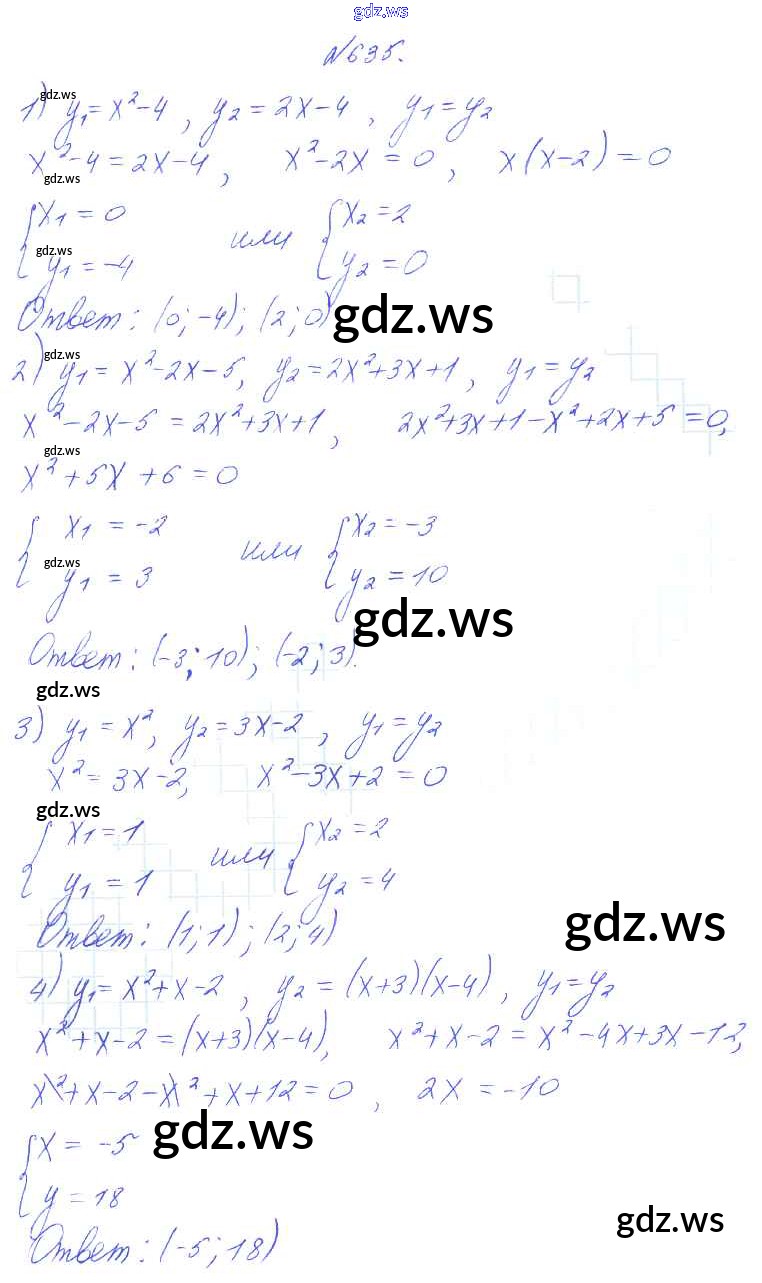 gdz.ws
№635.
gdz.ws
1) y₁ = x² - 4 , y₂ = 2x - 4 , y₁ = y₂
x² - 4 = 2x - 4 , x² - 2x = 0 , x(x - 2) = 0
gdz.ws
{ x₁ = 0 или { x₂ = 2
gdz.ws
y₁ = -4 y₂ = 0
Ответ: (0; -4); (2; 0)
gdz.ws
gdz.ws
2) y₁ = x² - 2x - 5, y₂ = 2x² + 3x + 1 , y₁ = y₂
x² - 2x - 5 = 2x² + 3x + 1 , 2x² + 3x + 1 - x² + 2x + 5 = 0,
gdz.ws
x² + 5x + 6 = 0
{ x₁ = -2 или { x₂ = -3
gdz.ws
y₁ = 3 y₂ = 10
gdz.ws
Ответ: (-3; 10); (-2; 3).
gdz.ws
3) y₁ = x², y₂ = 3x - 2 , y₁ = y₂
x² = 3x - 2, x² - 3x + 2 = 0
gdz.ws
{ x₁ = 1 или { x₂ = 2
y₁ = 1 y₂ = 4
Ответ: (1; 1) ; (2; 4)
gdz.ws
4) y₁ = x² + x - 2 , y₂ = (x + 3)(x - 4) , y₁ = y₂
x² + x - 2 = (x + 3)(x - 4), x² + x - 2 = x² - 4x + 3x - 12,
x² + x - 2 - x² + x + 12 = 0 , 2x = -10
gdz.ws
{ x = -5
y = 18
gdz.ws
Ответ: (-5; 18)